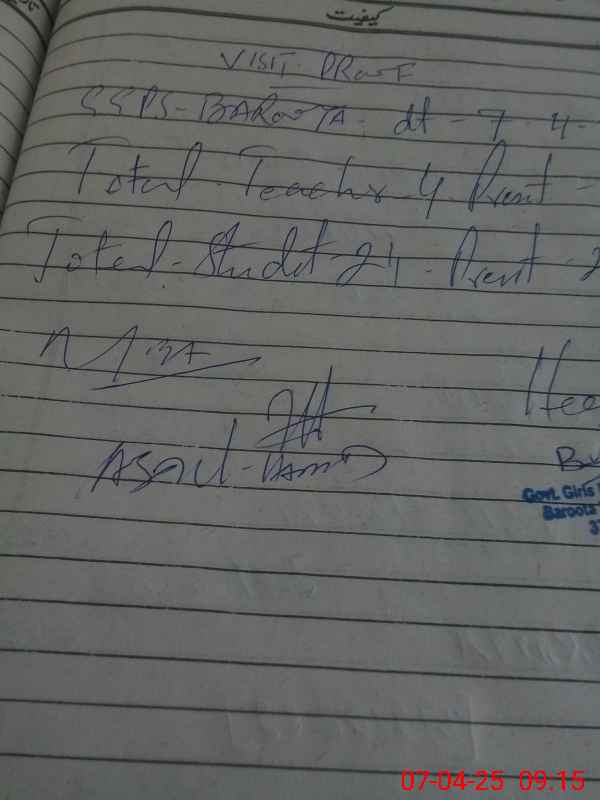 کیفیت
VISIT PROOF
GGPS-BAROOTA. dt-7-4-
Total Teacher-4 Present-
Total-Studdt-24-Prent-2
Asad-
Govt. Girls
Baroota
07-04-25 09:15